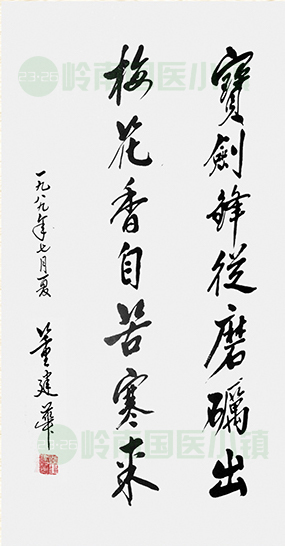 寶劍鋒從磨礪出
梅花香自苦寒来
一九八九年七月夏
董建華
23·26 岭南国医小镇
23·26 岭南国医小镇